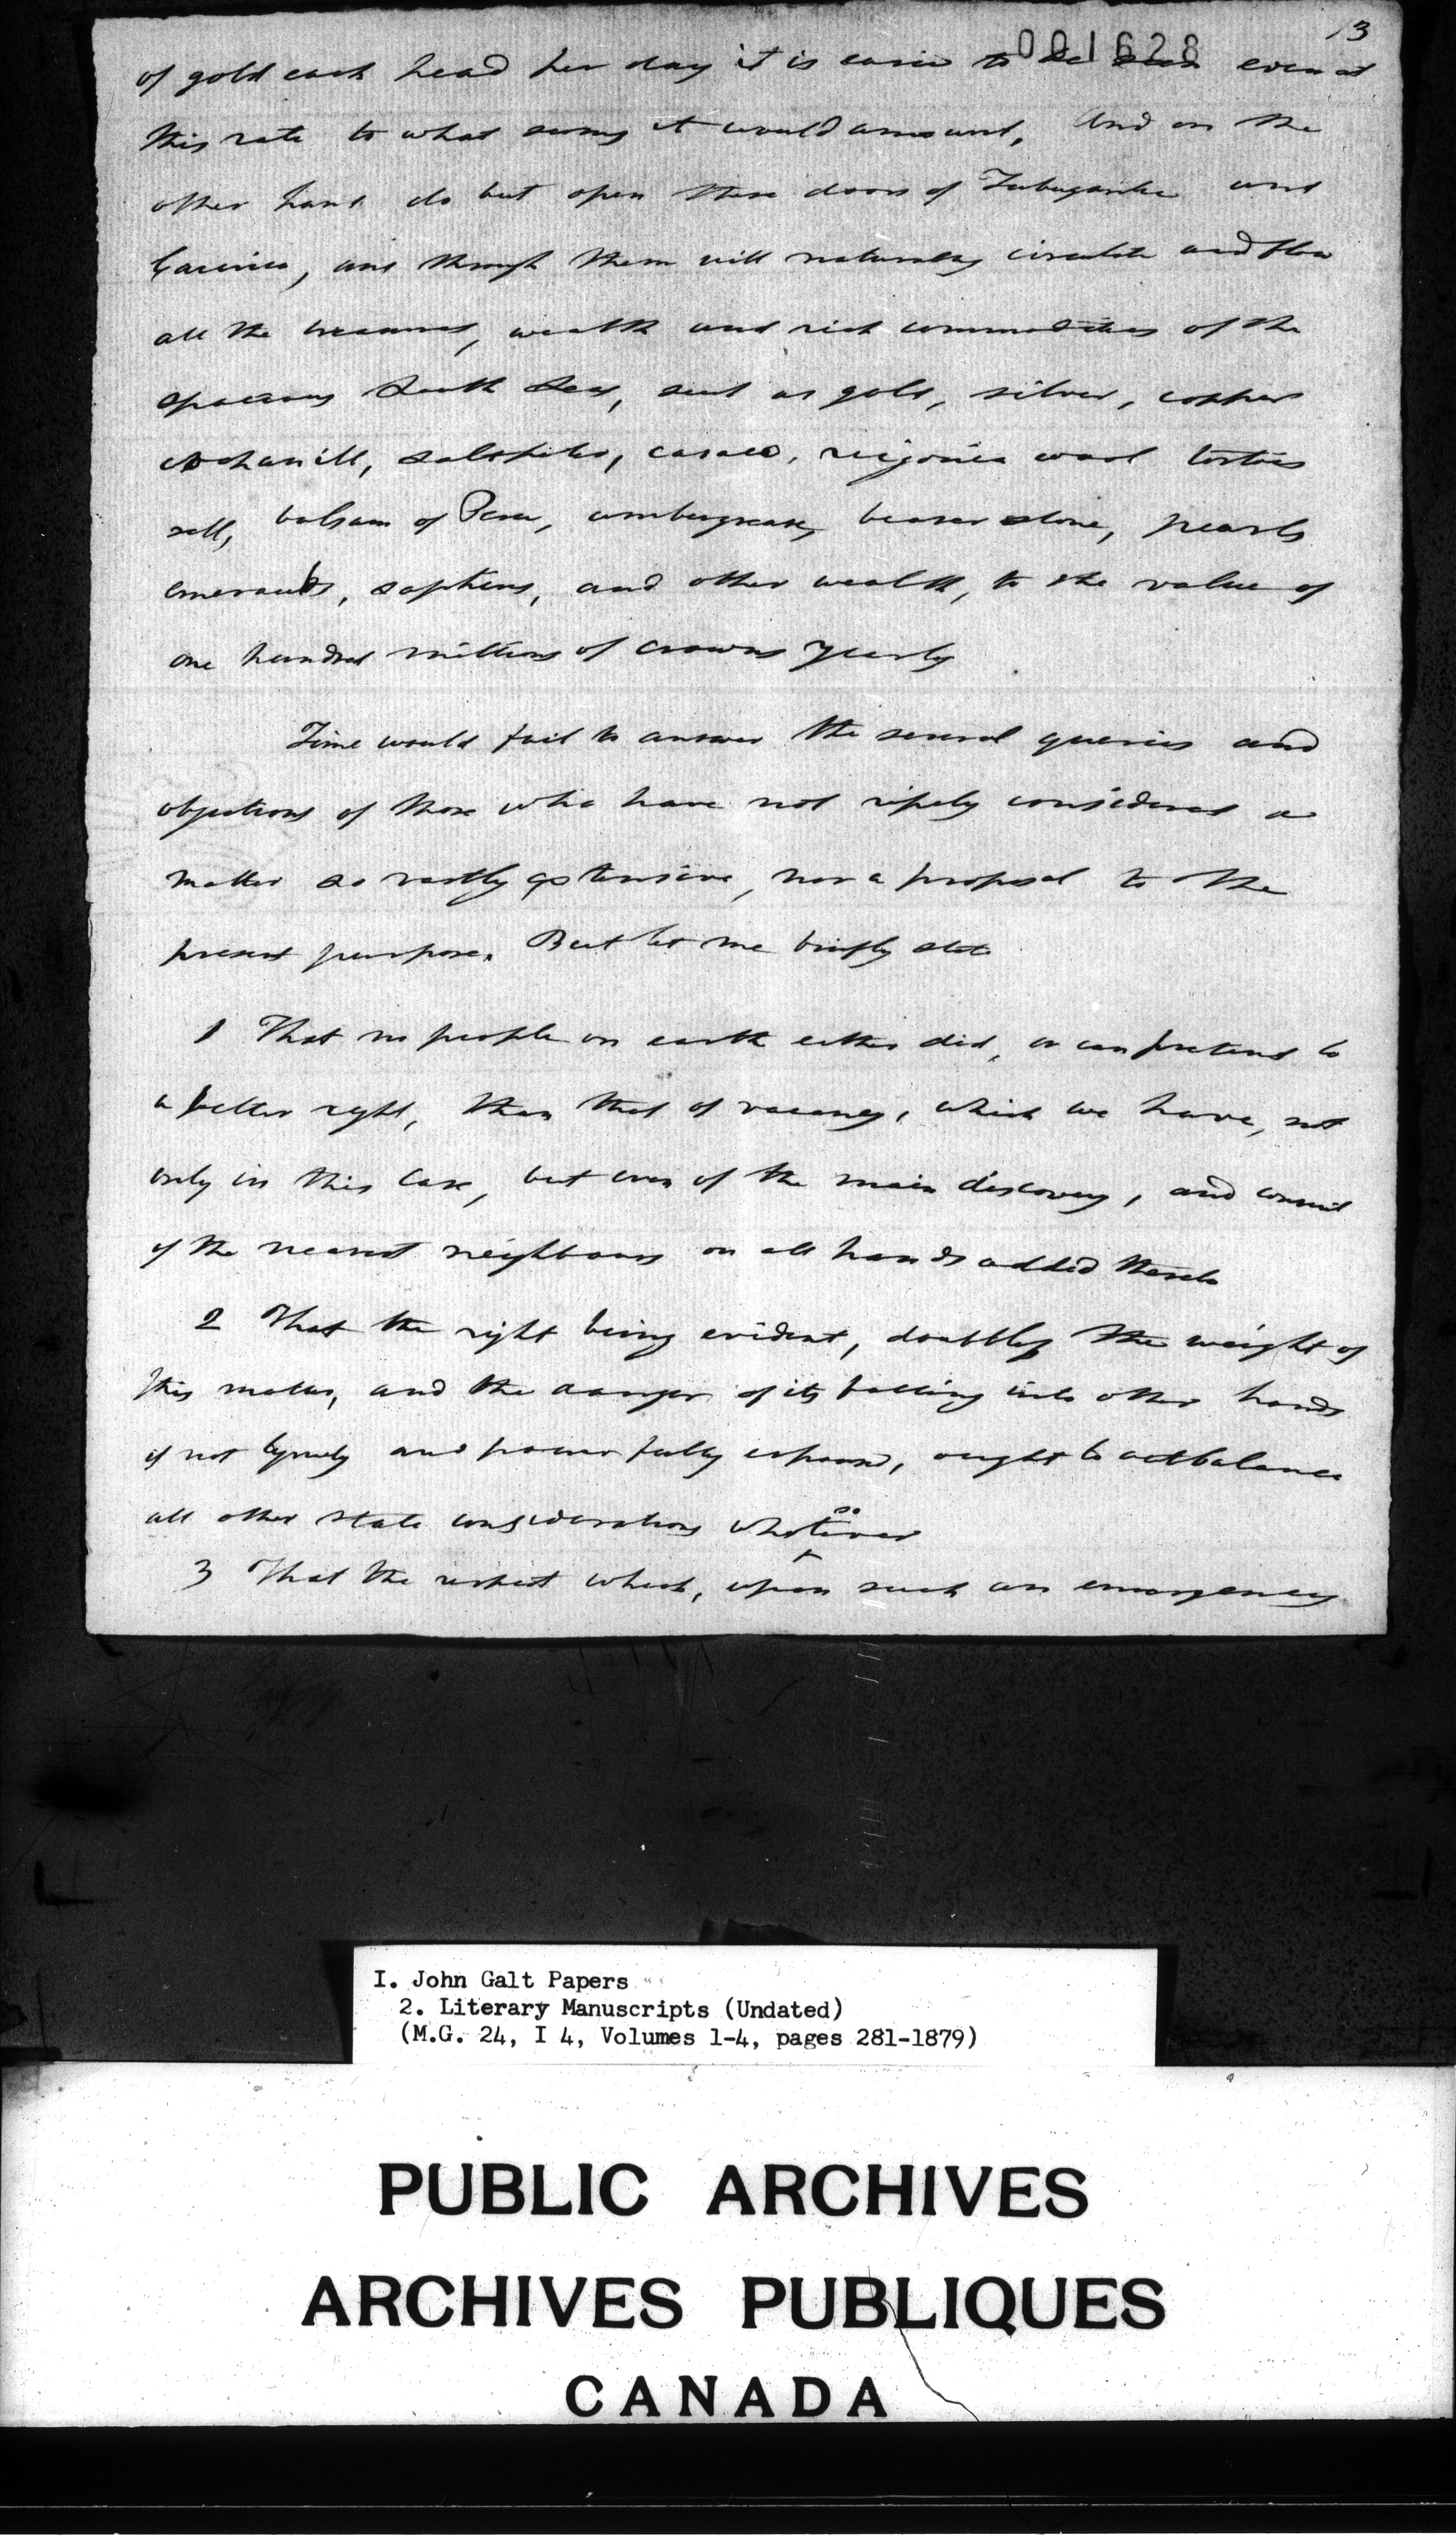 13
001628
of gold each head per day it is easie to be seen even at
this rate to what sums it would amount. And on the
other hand do but open these doors of Tubuganti and
Cacarica, and through them will naturally circulate and flow
all the treasures, wealth and rich commodities of the
spacious South Seas, such as gold, silver, copper
cochanill, saltpeter, cacaco, vigonia wool tortois
sell, balsam of Peru, ambergrease, beazer stone, pearls
emeraulds, saphirs, and other wealth, to the value of
one hundred millions of crowns yearly
Time would fail to answer the several queries and
objections of those who have not ripely considered a
matter so vastly extensive, nor a proposal to the
present purpose. But let me briefly state
1 That no people on earth either did, or can pretend to
a better right, than that of vacancy, which we have, not
only in this case, but even of the main discovery, and consent
of the nearest neighbours on all hands added thereto
2 That the right being evident, doubtless the weight of
this matter, and the danger of its falling into other hands
if not tymely and powerfully espoused, ought to outbalance
all other state considerations whatsoever
3 That the respect which, upon such an emergency
I. John Galt Papers
2. Literary Manuscripts (Undated)
(M.G. 24, I 4, Volumes 1-4, pages 281-1879)
PUBLIC ARCHIVES
ARCHIVES PUBLIQUES
CANADA